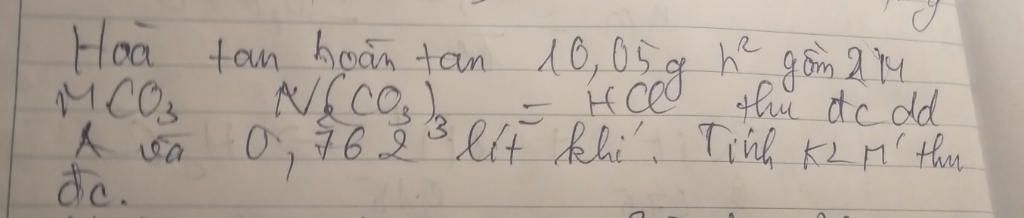 Hoà tan hoàn tan 10,05g h² gồm 2 M
MCO₃ N₂(CO₃)₃ = HCl thu đc dd
A và 0,762 lít khí. Tính KL M' thu
đc.